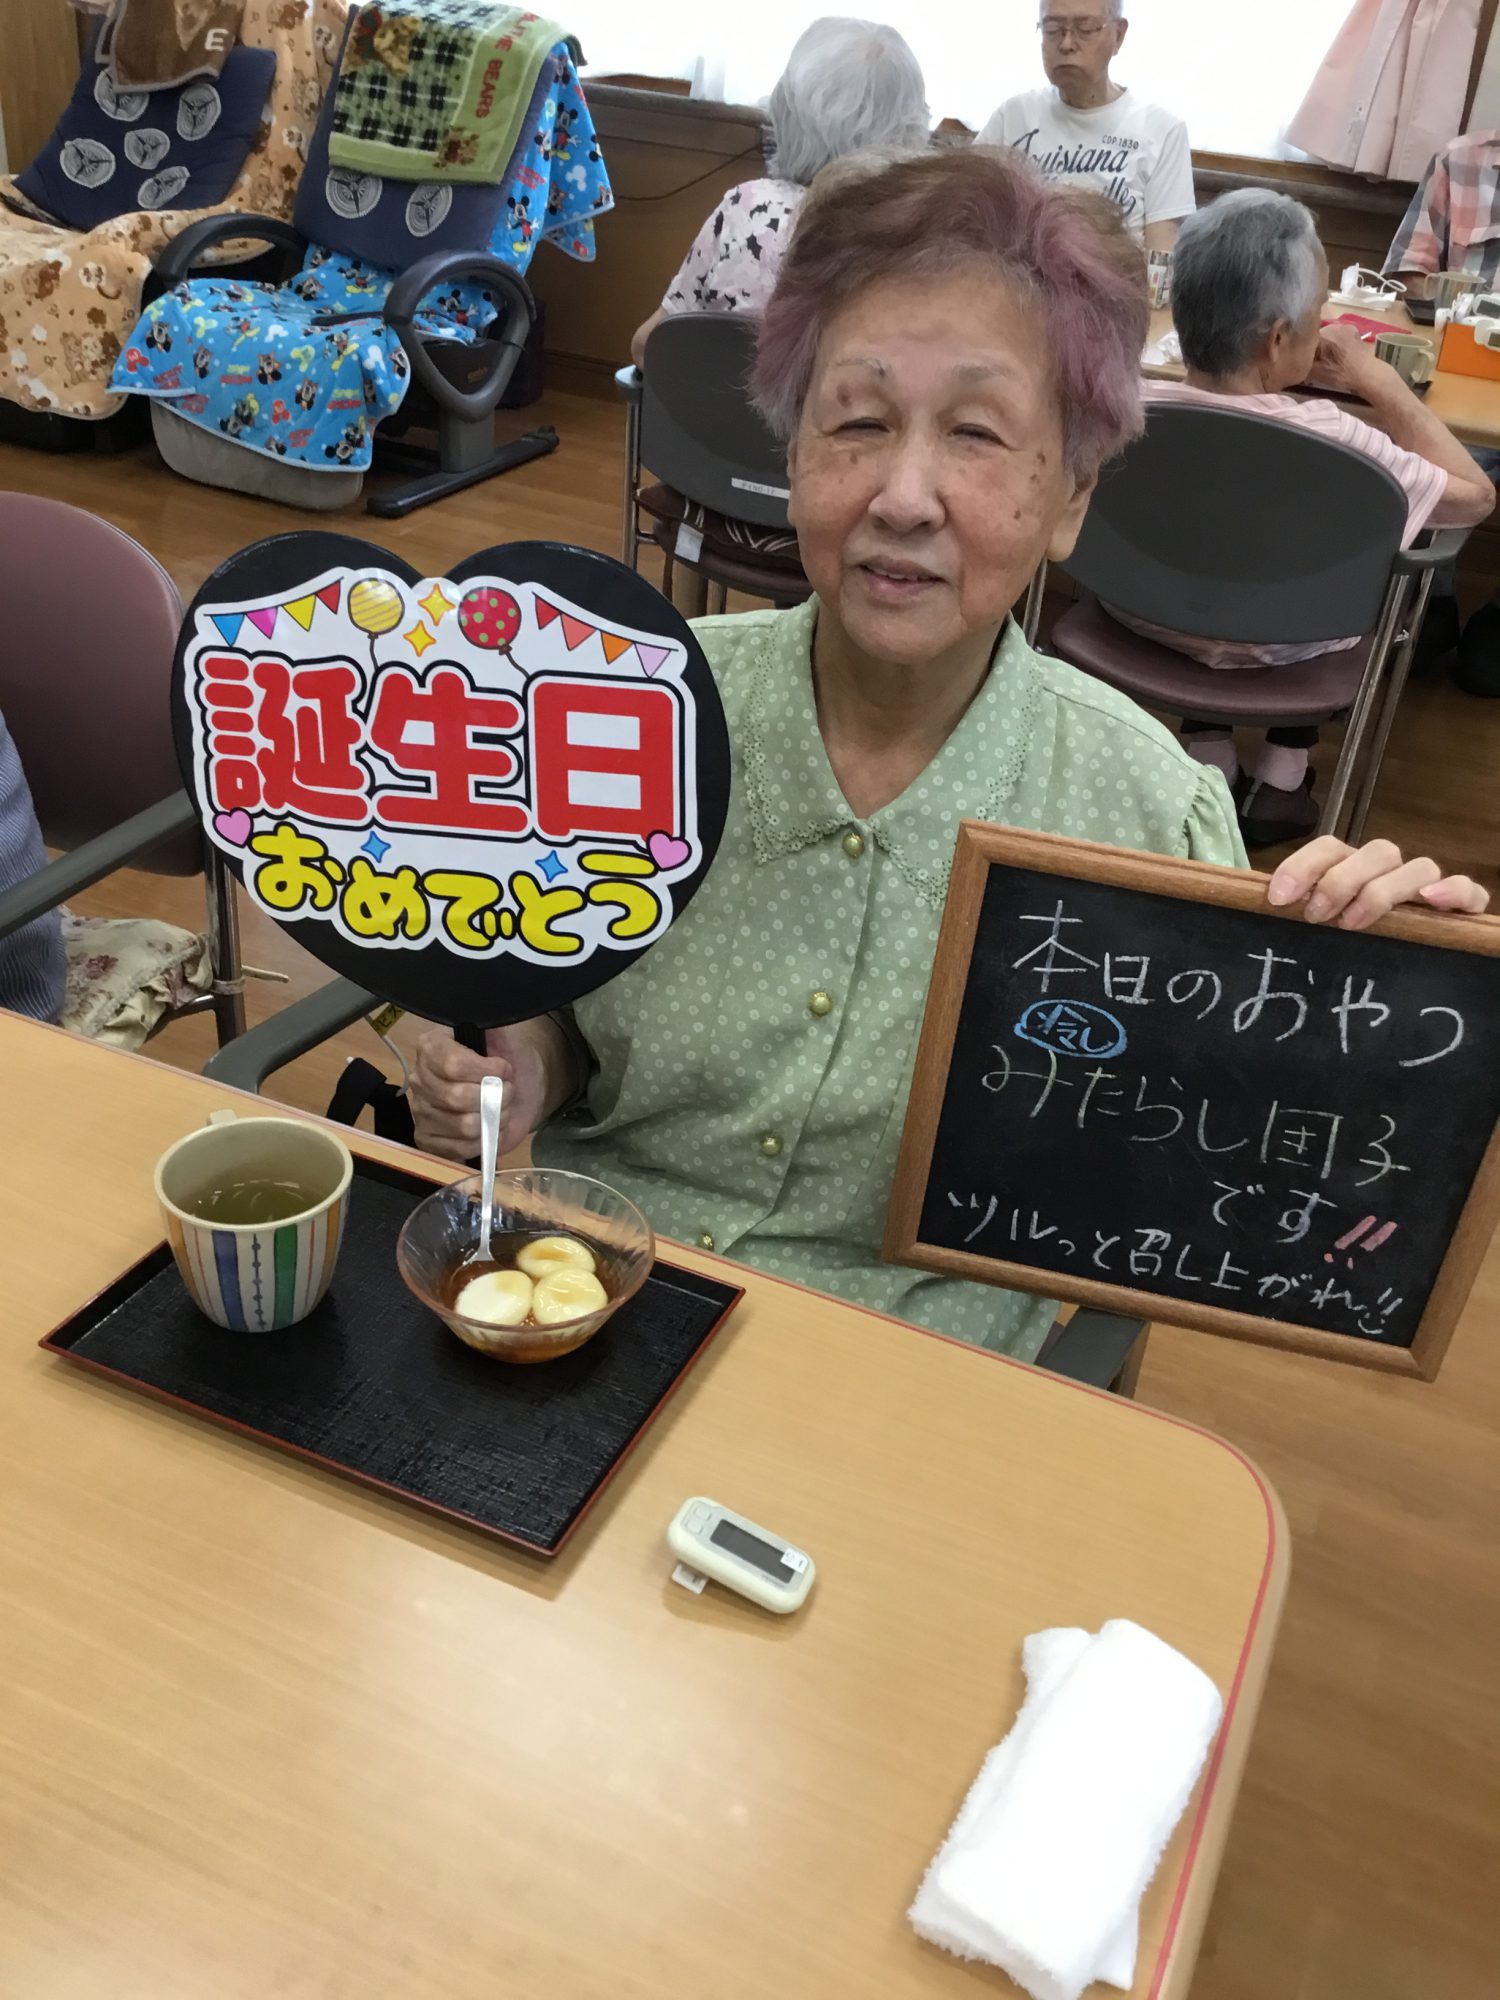 THE BEARS
E
CDP.1830
Louisiana
誕生日
おめでとう
本日のおやつ
冷やし
みたらし団子
です!!
ツルっと召し上がれ!!